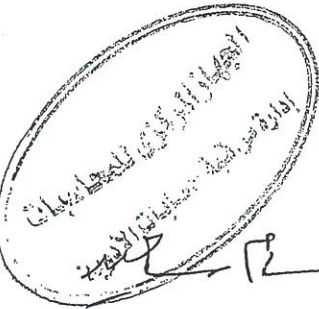 الجهاز المركزى للمحاسبات
إدارة مراقبة حسابات